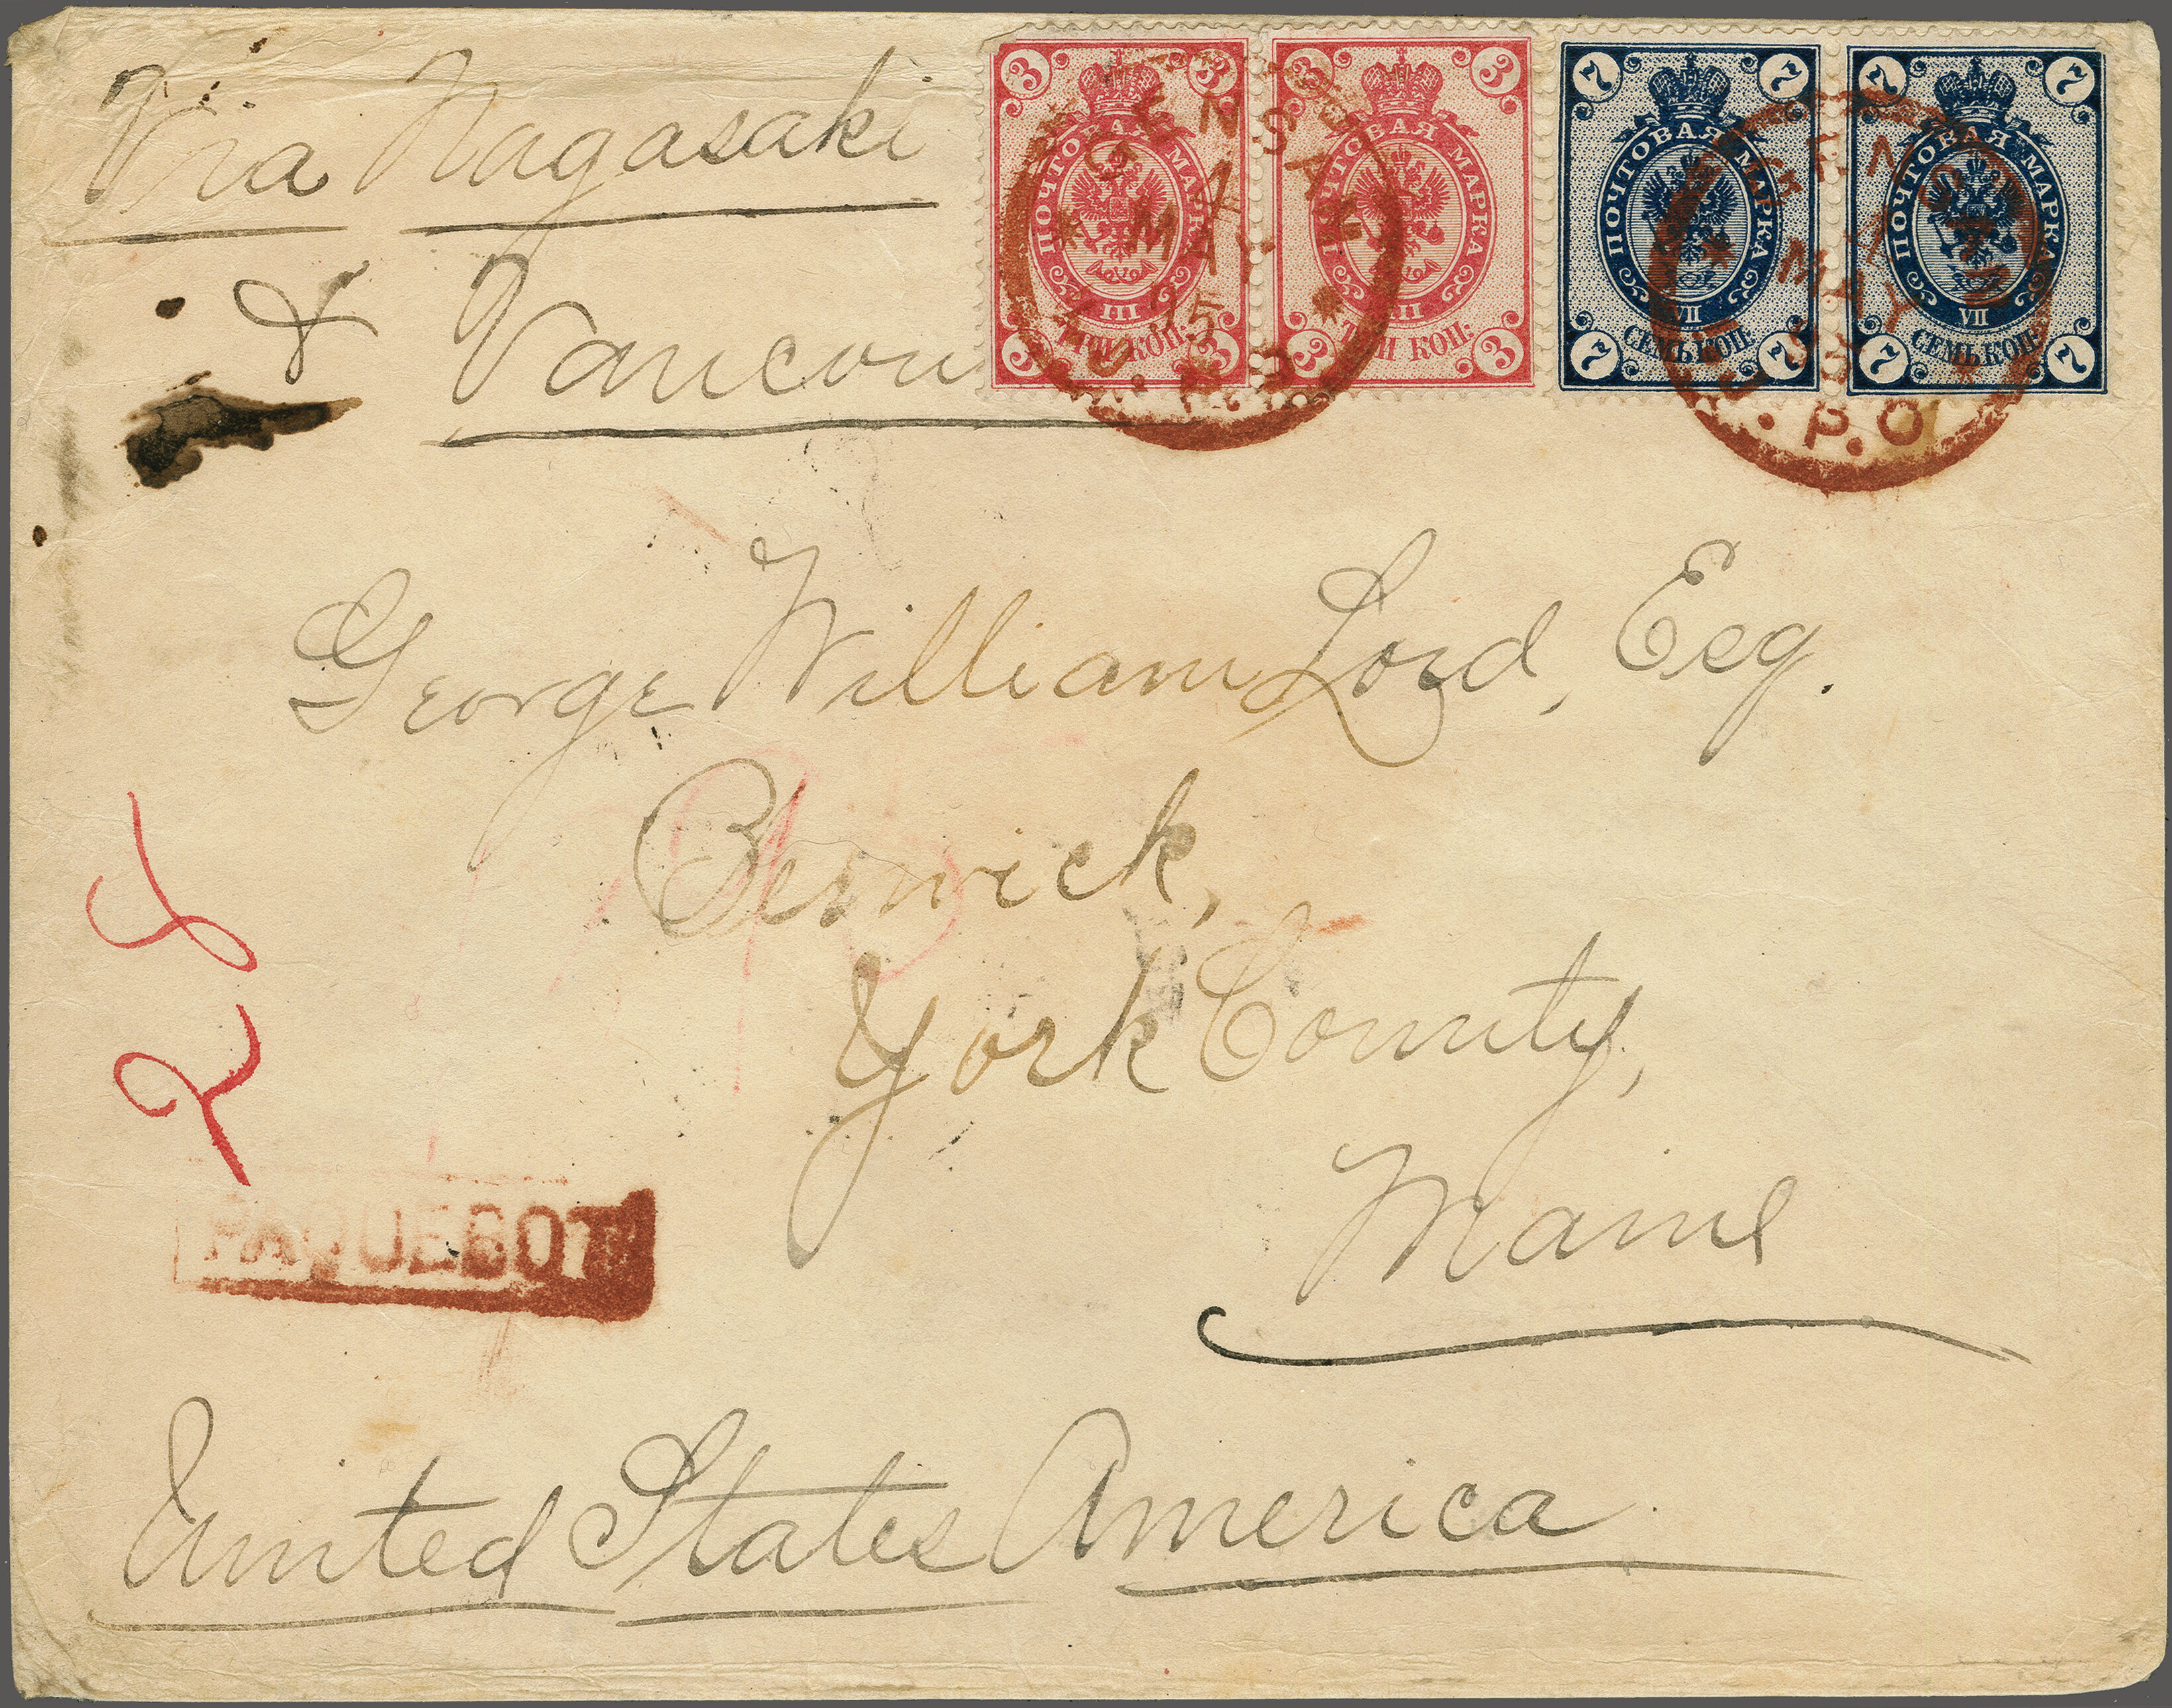 Via Nagasaki
& Vancou
3 3 3 3 7 7 7 7
ПОЧТОВАЯ МАРКА ПОЧТОВАЯ МАРКА ПОЧТОВАЯ МАРКА ПОЧТОВАЯ МАРКА
III III VII VII
ТРИ КОП: ТРИ КОП: СЕМЬ КОП: СЕМЬ КОП:
3 3 3 3 7 7 7 7
GENSAN
MAY
I.J.P.O
GENSAN
MAY
I.J.P.O
George William Lord, Esq.
Berwick,
York County,
Maine
28
PAQUEBOT
United States America